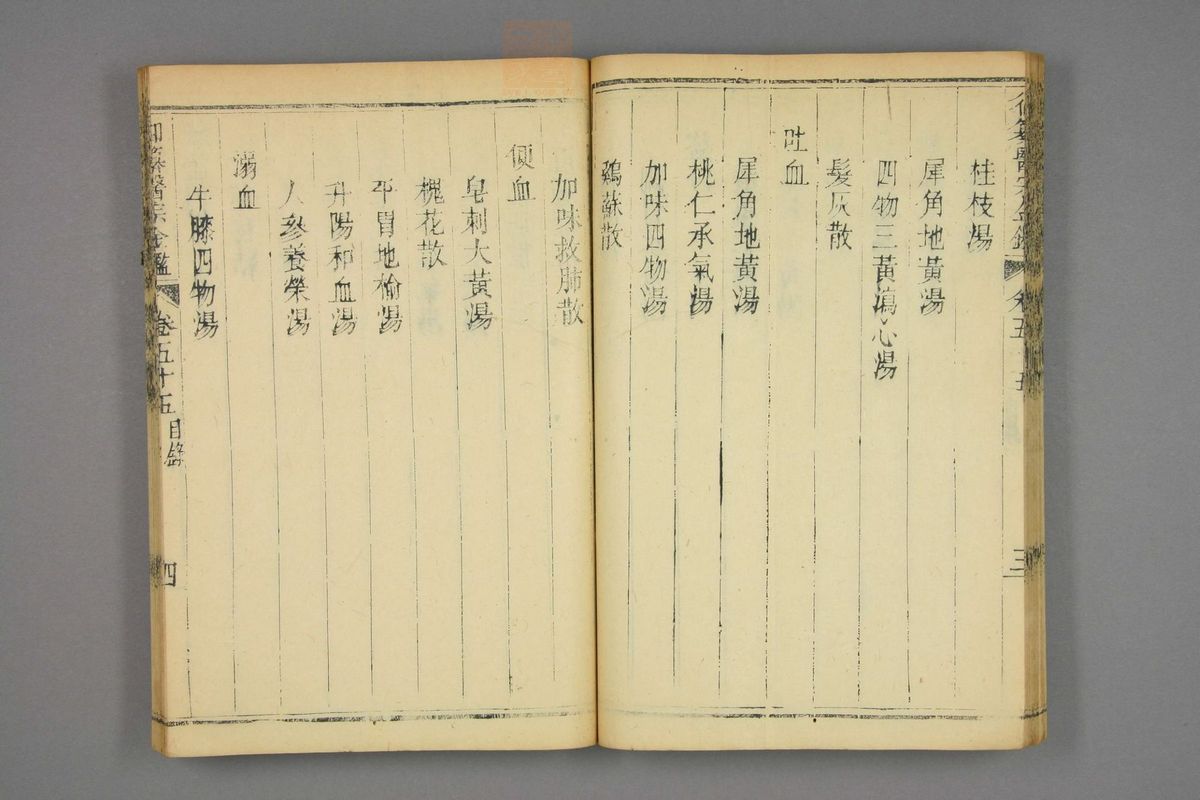 御纂醫宗金鑑 卷五十五 三
桂枝湯
犀角地黃湯
四物三黃瀉心湯
髮灰散
吐血
犀角地黃湯
桃仁承氣湯
加味四物湯
鷄蘇散
加味救肺散
便血
皂刺大黃湯
槐花散
平胃地榆湯
升陽和血湯
人參養榮湯
溺血
牛膝四物湯
御纂醫宗金鑑 卷五十五 目錄 四